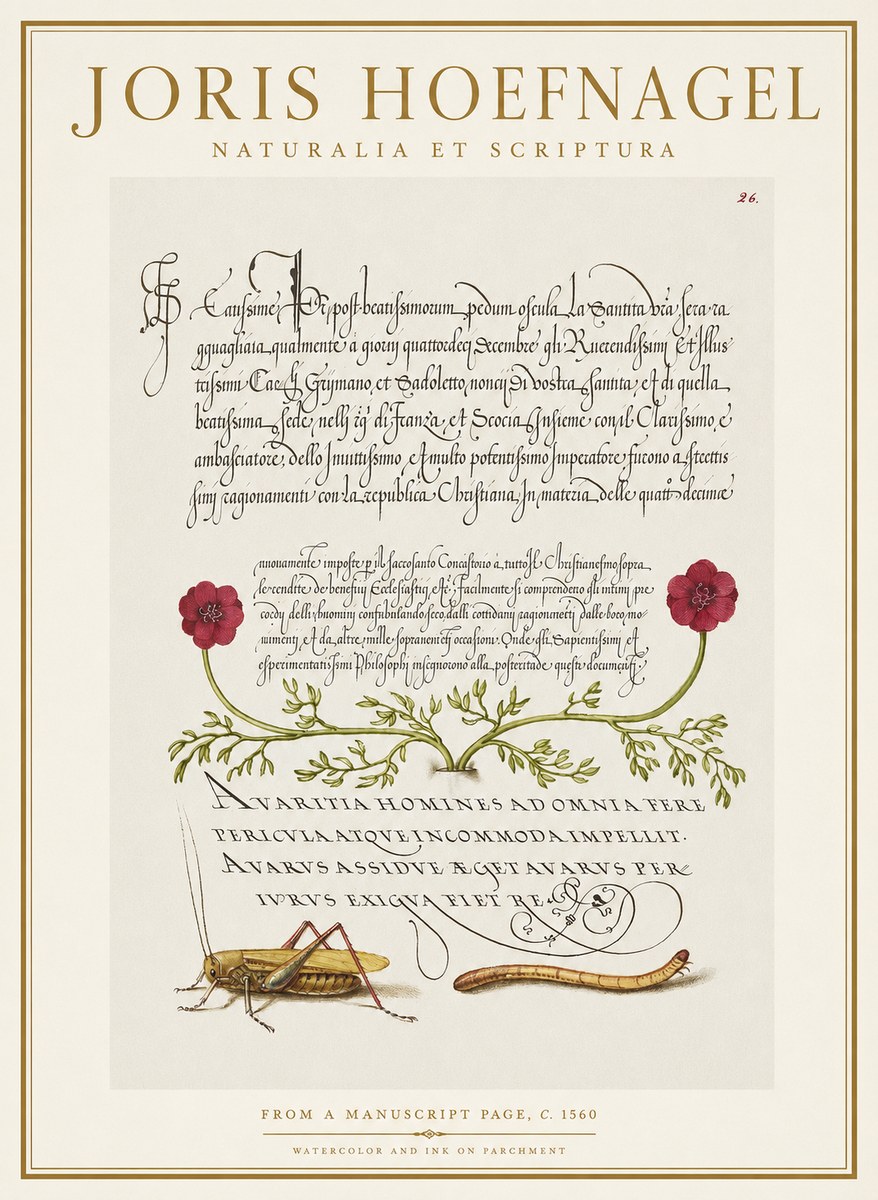 JORIS HOEFNAGEL
NATURALIA ET SCRIPTURA
26.
post beatissimorum pedum oscula La Santita vra sera ra
gguagliata qualmente a giorni quattordeci Decembre gli Reuerendissimi Et Illus
trissimi Grymano, et Sadoletto, noncij Di vostra santita, et di quella
beatissima sede, nelli di Franza, et Scocia Insieme con il Clarissimo, e
ambasciatore, dello Inuittissimo, et multo potentissimo Imperatore furono a
simi ragionamenti con la republica Christiana, In materia delle decime
nuouamente imposte p il saccosanto a tutto Il Christianesmo sopra
le rendite de beneficij Ecclesiastici, Facilmente si comprendeno gli intimi pre
cordij delli huomini confabulando seco, dalli cottidani dalle boco, mo
uimenti, et da altre mille occasioni. Onde gli Sapientissimi et
esperimentatissimi Philosophi insegnorono alla posteritade questi
AVARITIA HOMINES AD OMNIA FERE
PERICVLA ATQVE INCOMMODA IMPELLIT.
AVARVS ASSIDVE ÆGET AVARVS PER
IVRVS EXIGVA FIET RE
FROM A MANUSCRIPT PAGE, C. 1560
WATERCOLOR AND INK ON PARCHMENT